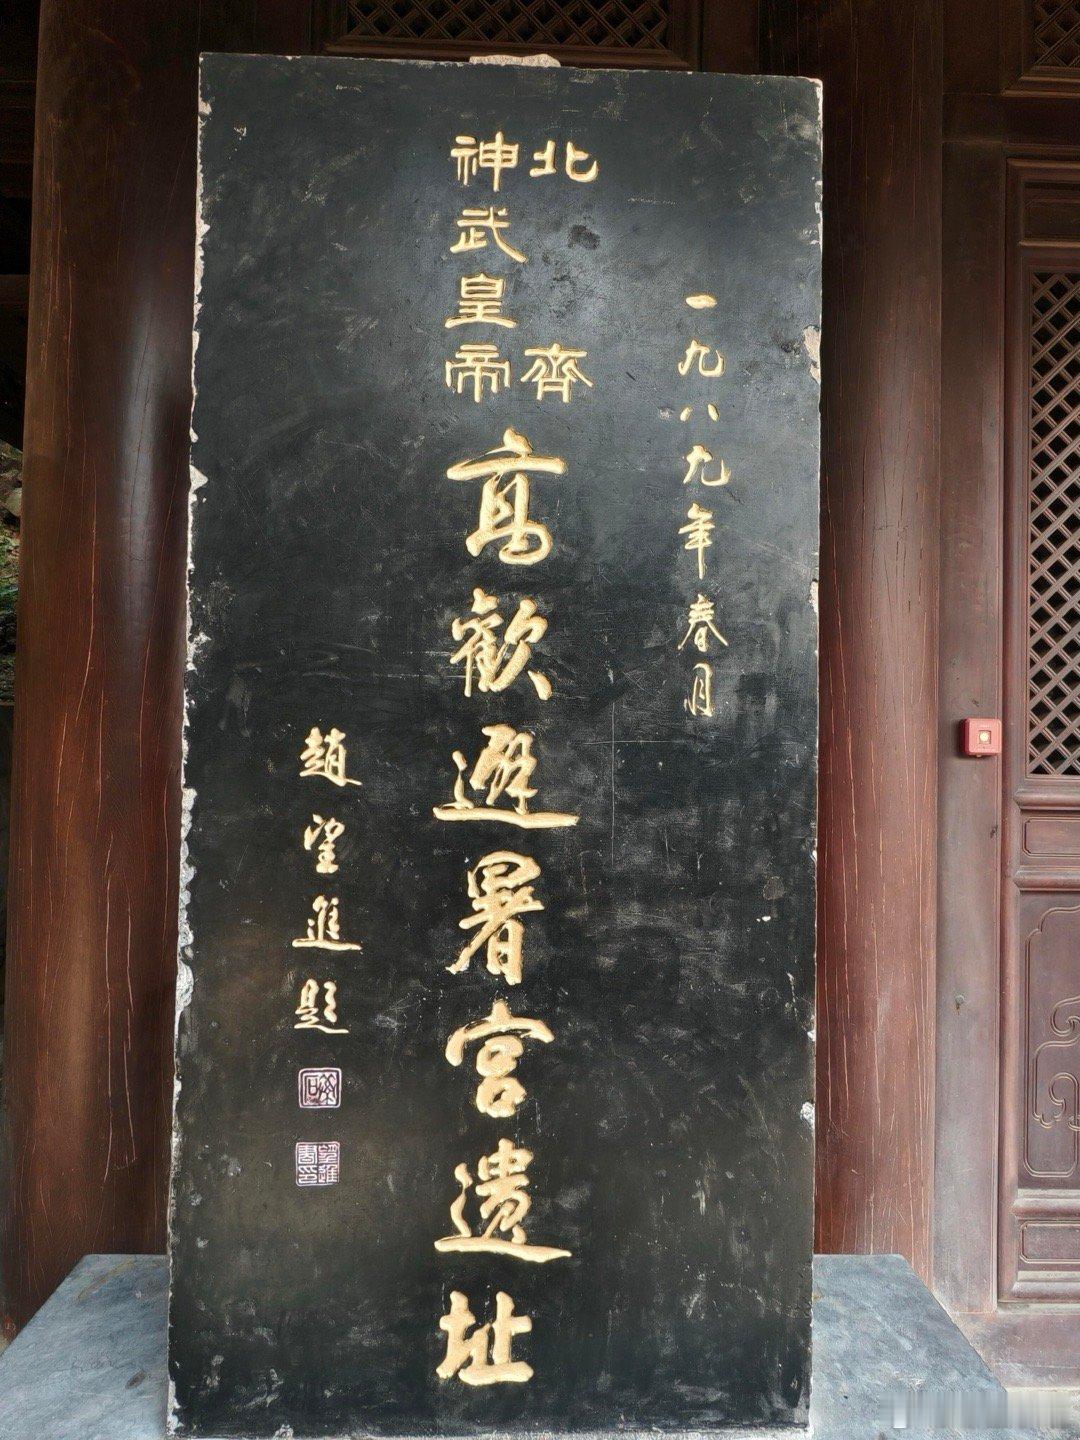 一九八九年春月
北齊
神武皇帝
高歡避暑宮遺址
趙望進題